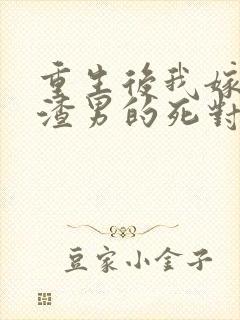 重生後我嫁
渣男的死對
豆家小金子